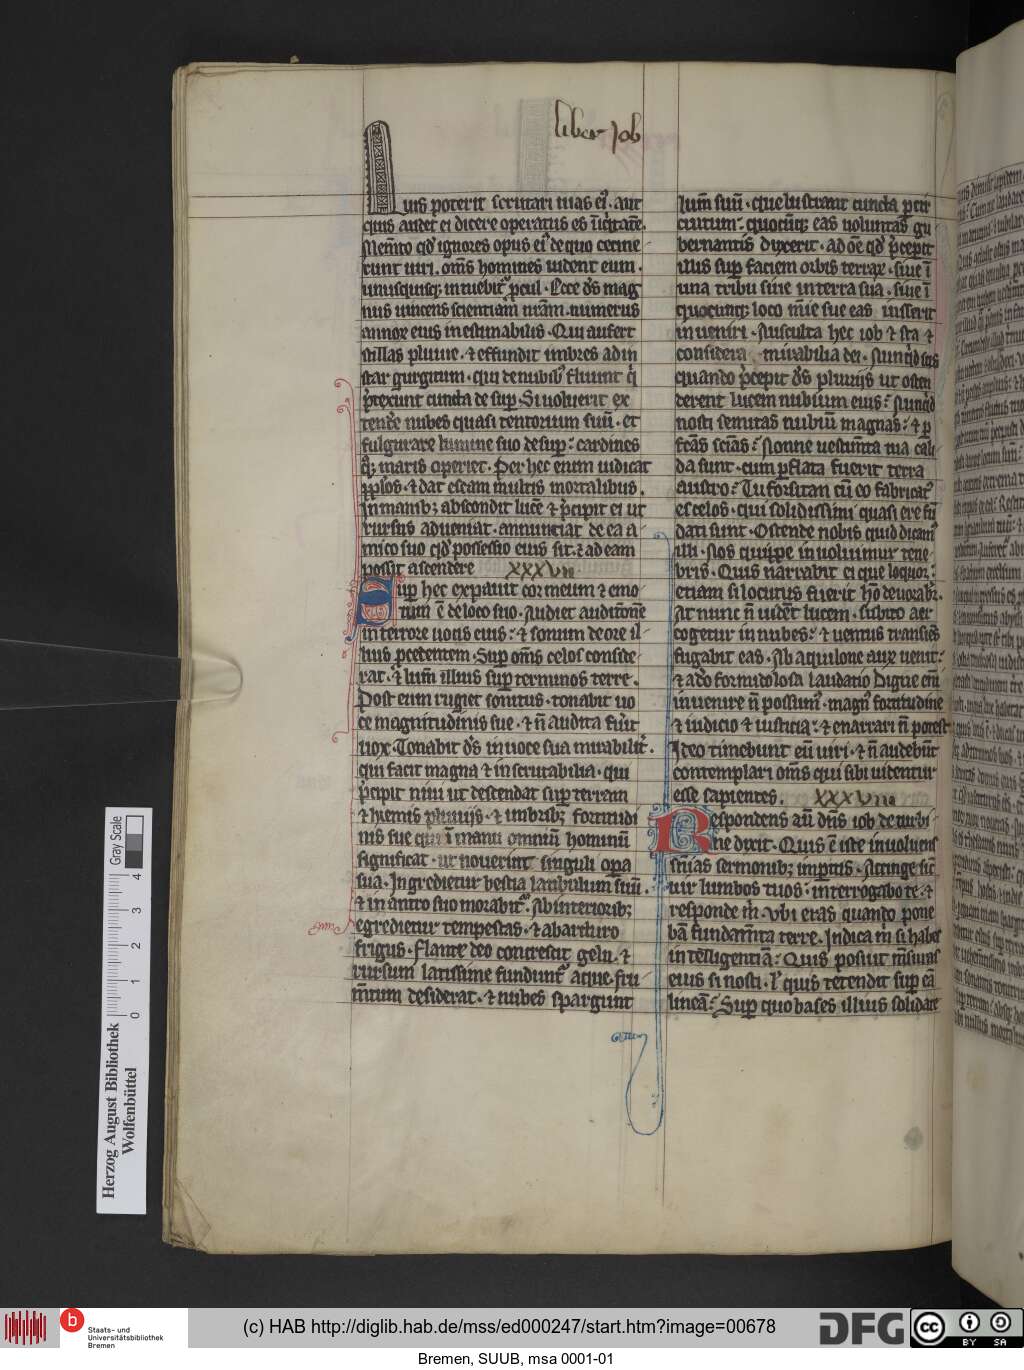 liber Job
uis poterit scrutari uias ei⁹. aut
quis audet ei dicere operatus es
Mem̄to qd̄ ignores opus ei⁹ de quo cecine
runt uiri. om̄s homines uident eum.
unusquisq; intuebit᷑ ꝓcul. Ecce d̄s mag
nus uincens scientiam nr̄am. numerus
annoꝝ eius inestimabilis. Qui aufert
stillas pluuie. ⁊ effundit imbres ad in
star gurgitum. qui de nubib; fluunt q̇
p̄texunt cuncta de sup̄. Si uoluerit ex
tend̄e nubes quasi tentorium suū. et
fulgurare lumine suo desup̄: cardines
q; maris operiet. Per hec enim iudicat
ꝓplos. ⁊ dat escam multis mortalibus.
In manib; abscondit lucē ⁊ p̄cipit ei ut
rursus adueniat. annunciat de ea a
mico suo qd̄ possessio eius sit. ⁊ ad eam
possit ascendere XXXVII
Sup̄ hec expauit cor meum ⁊ emo
tum ē de loco suo. Audiet auditionē
in terrore uocis eius: ⁊ sonum de ore il
lius ꝓcedentem. Sup̄ om̄s celos conside
rat. ⁊ lum̄ illius sup̄ terminos terre.
Post eum rugiet sonitus. tonabit uo
ce magnitudinis sue. ⁊ n̄ audita fu̇it
uox. Tonabit d̄s in uoce sua mirabilit̄.
qui facit magna ⁊ inscrutabilia. qui
p̄cipit niui ut descendat sup̄ terram
⁊ hiemis pluuijs. ⁊ imbrib; fortitudi
nis sue qui ī manu omniū hominū
significat. ut nouerint singuli opa
sua. Ingredietur bestia latibulum suū.
⁊ in antro suo morabit᷑. Ab interiorib;
egredietur tempestas. ⁊ ab arcturo
frigus. Flante deo concrescit gelu. ⁊
rursum latissime fundunt᷑ aque. fru
m̄tum desiderat. ⁊ nubes spargunt
lum̄ suū. que lustrant cuncta ꝑ cir
cuitum. quocūq; eas uoluntas gu
bernantis duxerit. ad oē qd̄ p̄cepit
illis sup̄ faciem orbis terraꝝ. siue ī
una tribu siue in terra sua. siue ī
quocunq; loco mīe sue eas iusserit
inueniri. Ausculta hec iob ⁊ sta ⁊
considera mirabilia dei. Nunq̇d scis
quando p̄cepit d̄s pluuijs ut osten
derent lucem nubium eius: Nunq̇d
nosti semitas nubiū magnas: ⁊ ꝑ
fcās scīas: Nonne uestim̄ta tua cali
da sunt. cum ꝑflata fuerit terra
austro: Tu forsitan cū eo fabricat⁹
es celos. qui solidissimi quasi ere fu
dati sunt. Ostende nobis quid dicam⁹
illi. Nos quippe inuoluimur tene
bris. Quis narrabit ei que loquor:
etiam si locutus fuerit hō deuorabit᷑.
At nunc n̄ uidēt lucem. subito aer
cogetur in nubes: ⁊ uentus transiēs
fugabit eas. Ab aquilone auꝝ uenit:
⁊ a dō formidolosa laudatio Digne eū
inuenire n̄ possum⁹. magn⁹ fortitudine
⁊ iudicio ⁊ iusticia: ⁊ enarrari n̄ potest
Ideo timebunt eū uiri. ⁊ n̄ audebūt
contemplari om̄s qui sibi uidentur
esse sapientes. XXXVIII
Respondens aū dn̄s iob de turbi
ne dixit. Quis ē iste inuoluens
sn̄ias sermonib; imꝑitis. Accinge sic̄
uir lumbos tuos: interrogabo te. ⁊
responde m̄. Vbi eras quando pone
bā fundam̄ta terre. Indica m̄ si habes
intelligentiā: Quis posuit m̄suras
eius si nosti. ł quis tetendit sup̄ eā
lineā: Sup̄ quo bases illius solidate
Herzog August Bibliothek
Wolfenbüttel
0 1 2 3 4
Gray Scale
b Staats- und
Universitätsbibliothek
Bremen
(c) HAB http://diglib.hab.de/mss/ed000247/start.htm?image=00678
DFG
cc BY SA
Bremen, SUUB, msa 0001-01